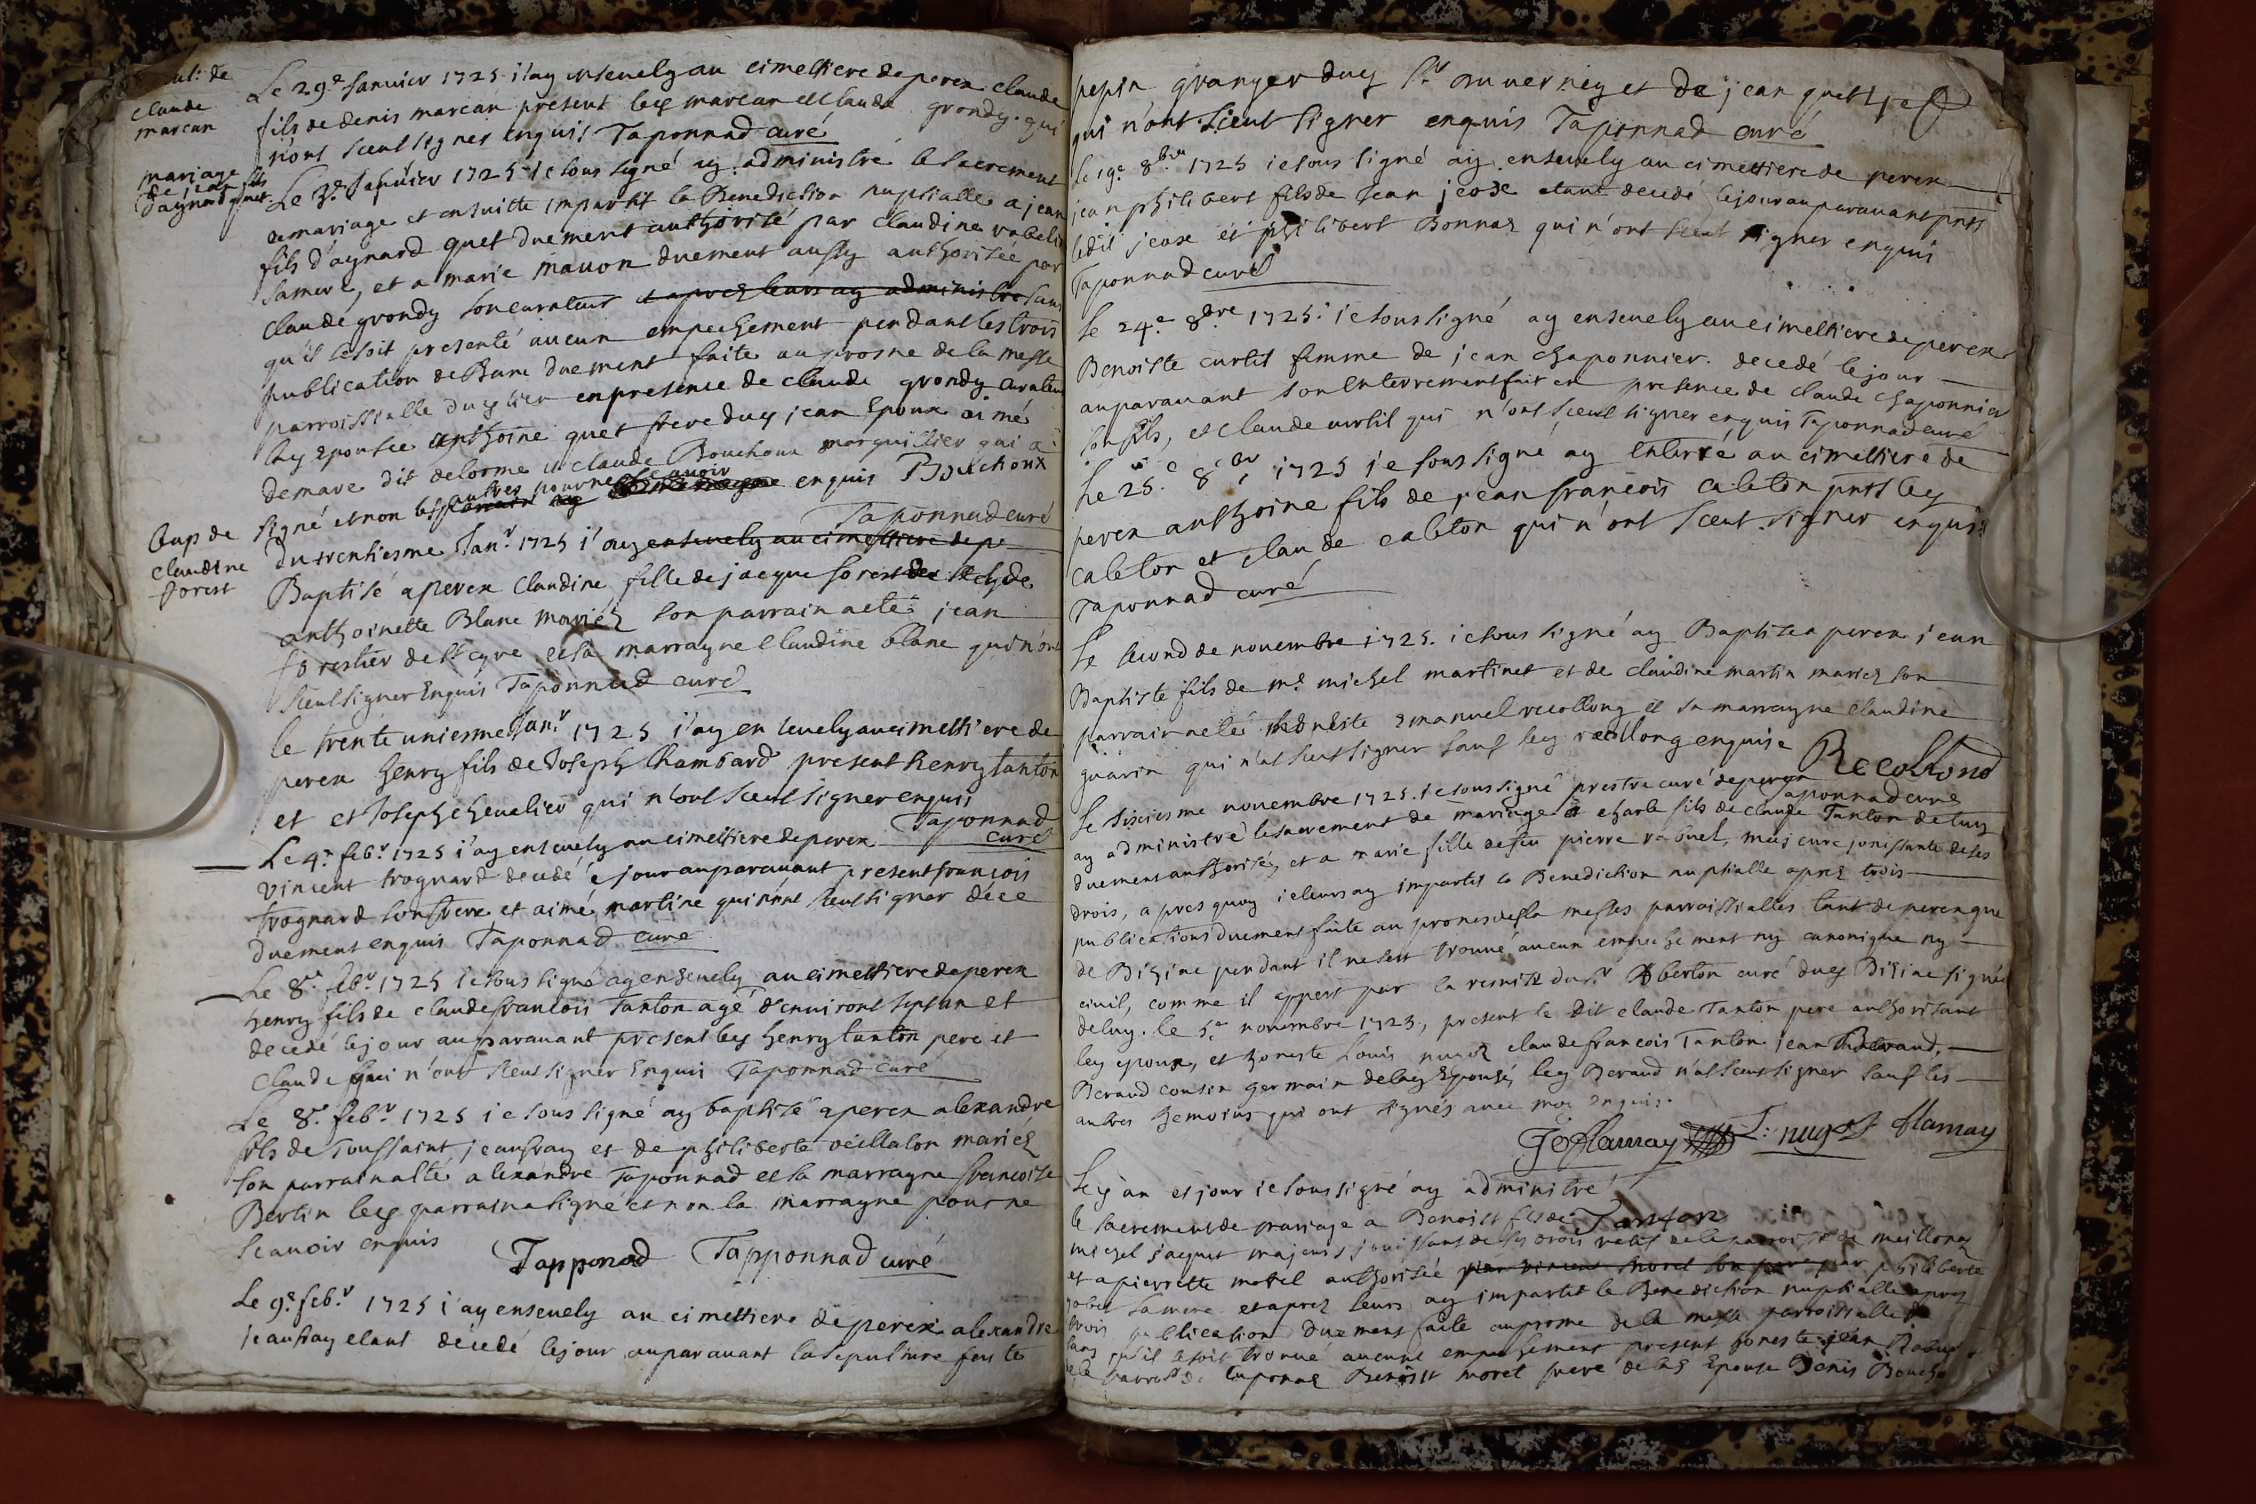 de
claude
marcan
Le 29e Januier 1725 i'ay enseuely au cimettiere de perex claude
fils de denis marcan present ley marcan et claude grondy qui
n'ont sceut signer enquis Taponnad curé
mariage
de jean fils
d'aynard quet
Le 3e Januier 1725 ie sous signé ay administré le sacrement
de mariage et ensuitte impartit la Benediction nuptialle a jean
fils d'aynard quet duement authorité par claudine
sa mere, et a marie mauon duement aussy authorisée par
claude grondy son curateur et aprez leurs ay administré sans
qu'il se soit presenté aucun empechement pendant les trois
publication de Banc duement faite au prosne de la messe
parroissialle duy lieu en presence de claude grondy curateur
lay epousée anthoine quet frere duy jean Epoux aimé
demare dit delorme et claude Bouchoux marguillier qui a
signé et non les autres pour ne scauoir enquis Bouchoux
Taponnad curé
bap de
claudine
forest
Du trentiesme Janr 1725 i'ay enseuely au cimettiere de pe
Baptisé a perex claudine fille de jacque forest de St cyre
anthoinette Blanc mariez son parrain a eté jean
forestier de St cyre et sa marrayne claudine blanc qui n'ont
sceut signer Enquis Taponnad curé
le trente uniesme Janr 1725 i'ay enseuely au cimettiere de
perex henry fils de Joseph Chambard present henry tanton
et et Joseph cheualier qui n'ont sceut signer enquis
Taponnad
curé
Le 4e febr 1725 i'ay enseuely au cimettiere de perex
vincent trognard decedé le jour auparauant present francois
trognard son frere et aimé martine qui n'ont sceut signer de ce
duement enquis Taponnad curé
Le 8e febr 1725 ie sous signé ay enseuely au cimettiere de perex
henry fils de claude francois Tanton agé d'enuiront sept an et
decedé le jour auparauant present ley henry tanton pere et
claude qui n'ont sceut signer Enquis Taponnad curé
Le 8e febr 1725 ie sous signé ay baptisé a perex alexandre
fils de Toussaint jeaufray et de philiberte veillalon mariéz
son parrain a eté alexandre Taponnad et sa marrayne francoise
Bertin ley parrain a signé et non la marrayne pour ne
scauoir enquis
Tapponad Tapponnad curé
Le 9e febr 1725 i'ay enseuely au cimettiere de perex alexandre
jeaufray etant décedé le jour auparauant la sepulture faite
pepin granger duy Sr auuerney et de jean quet
qui n'ont sceut signer enquis Taponnad curé
le 19e 8bre 1725 ie sous signé ay enseuely au cimettiere de perex
jean philibert fils de jean jeoxe etant decedé le jour auparauant pnts
ledit jeoxe et philibert Bonnaz qui n'ont sceut signer enquis
Taponnad curé
Le 24e 8bre 1725 ie sous signé ay enseuely au cimettiere de perex
Benoiste curtil femme de jean chaponnier decedé le jour
auparauant son Enterrement fait en presence de claude chaponnier
son fils, et claude curtil qui n'ont sceut signer enquis Taponnad curé
Le 25e 8bre 1725 ie sous signé ay Enterré au cimettiere de
perex anthoine fils de jean francois caleton pnts ley
caleton et claude caleton qui n'ont sceut signer enquis
Taponnad curé
Le second de nouembre 1725 ie sous signé ay Baptisé a perex jean
Baptiste fils de me michel martinet et de claudine martin mariez son
parrain a eté honneste emanuel recollong et sa marrayne claudine
guarin qui n'at sceut signer sauf ley recollong enquise Recollond
Taponnad curé
Le sixiesme nouembre 1725 ie sous signé prestre curé de perex
ay administré le sacrement de mariage a charle fils de claude Tanton de luy
duement authorisé, et a marie fille de feu pierre rabuel, majeure jouissante de ses
drois, apres quoy ie leurs ay impartit la Benediction nuptialle aprez trois
publications duement faite au prones de la messes parroissialles tant de perex que
de Biziac pendant il ne s'est trouué aucun empechement ny canonique ny
ciuil, comme il appert par la remise du Sr Aberton curé duy Biziac signée
de luy le 5e nouembre 1725, present le dit claude Tanton pere authorisant
ley epoux, et honeste Louis nugoz claude francois Tanton jean Beraud,
Beraud cousin germain de lay Epousé, ley Beraud n'at sceut signer sauf les
autres temoins qui ont signés auec moy enquis.
Jo flamay L: nugoz flamay
Ley an et jour ie sous signé ay administré
le sacrement de mariage a Benoist fils de Tanton
michel jacquet majeur jouissant de ses drois natif de la parroisse de meillonaz
et a pierrette morel authorisée par vincent morel son pere par philiberte
sa mere et aprez leurs ay impartit la Benediction nuptialle aprez
trois publication duement faite au prosne de la messe parroissialle
sans qu'il se soit trouué aucune empechement present honeste jean Rabuel
de la parroisse de luponaz Benoist morel frere de lay Epouse Denis Boucho